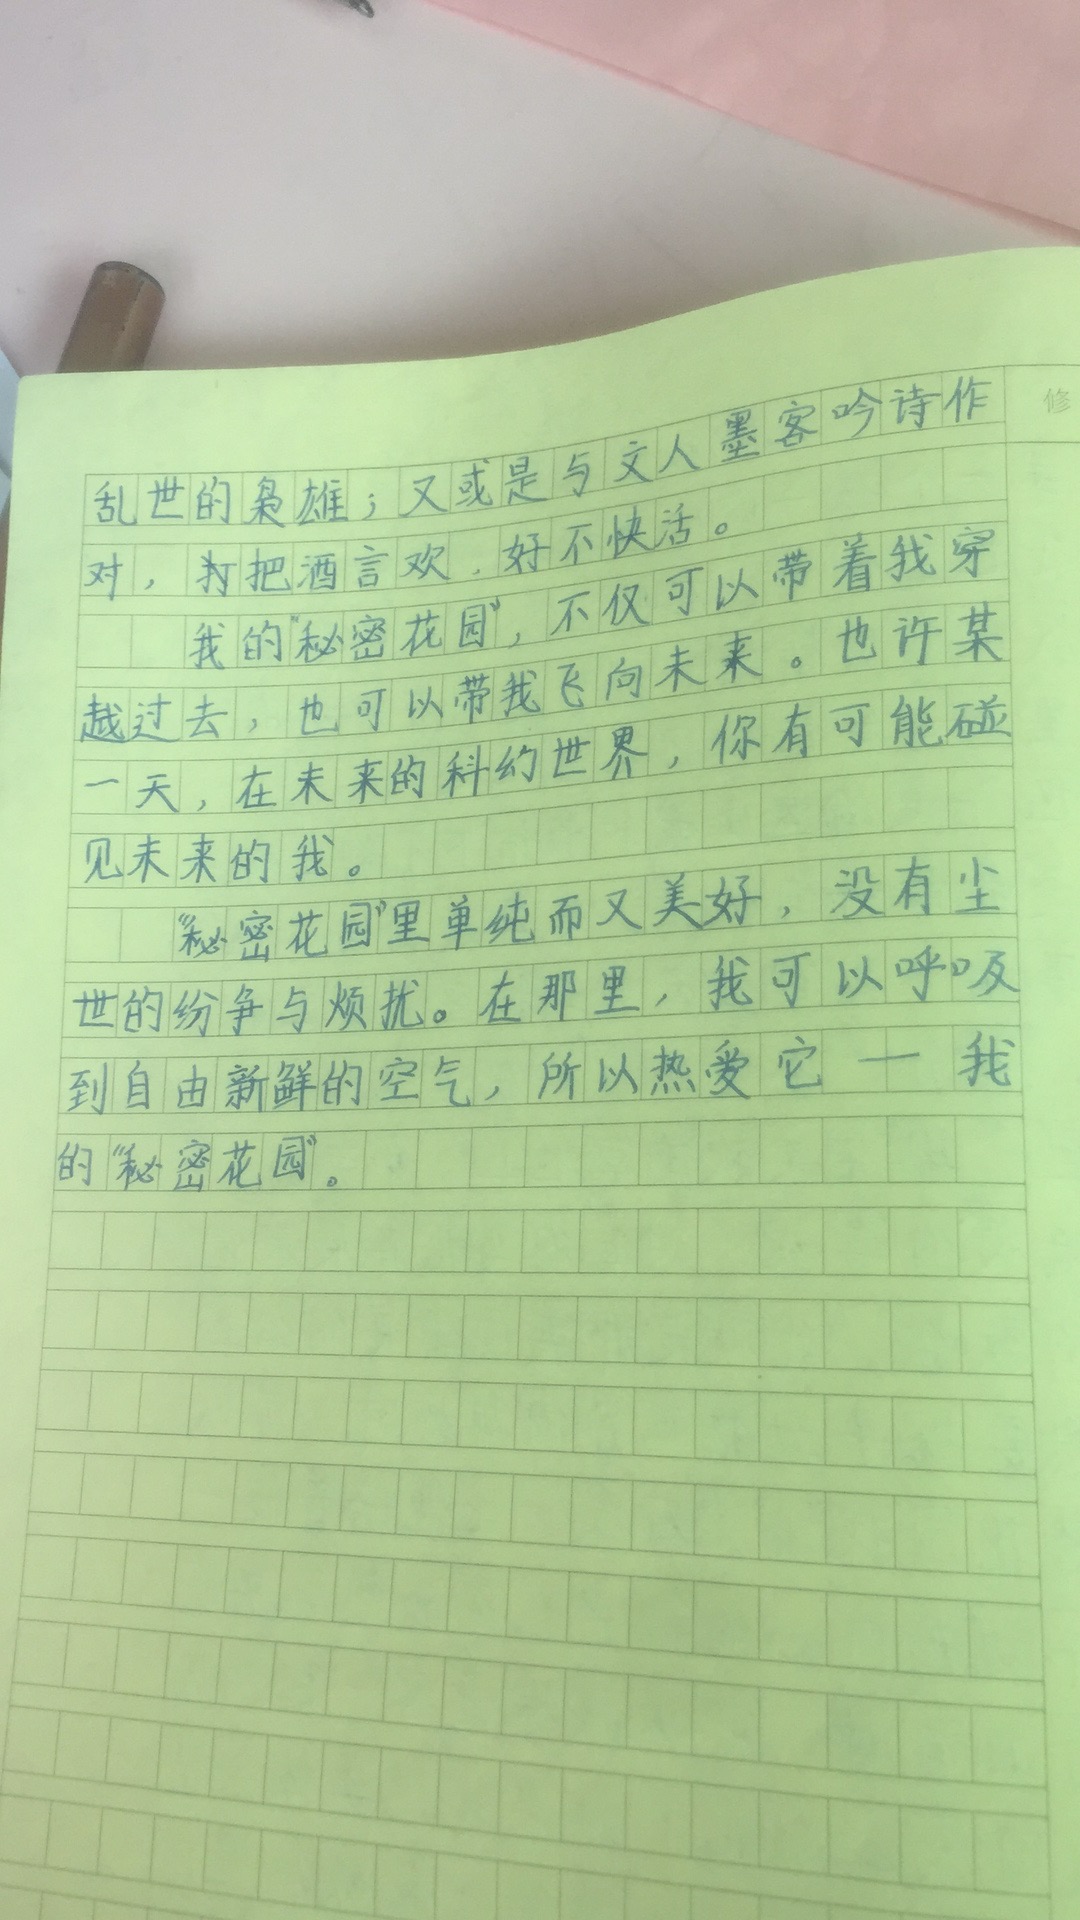 修
乱世的枭雄；又或是与文人墨客吟诗作
对，打把酒言欢，好不快活。
我的“秘密花园”，不仅可以带着我穿
越过去，也可以带我飞向未来。也许某
一天，在未来的科幻世界，你有可能碰
见未来的我。
“秘密花园”里单纯而又美好，没有尘
世的纷争与烦扰。在那里，我可以呼吸
到自由新鲜的空气，所以热爱它一我
的“秘密花园”。